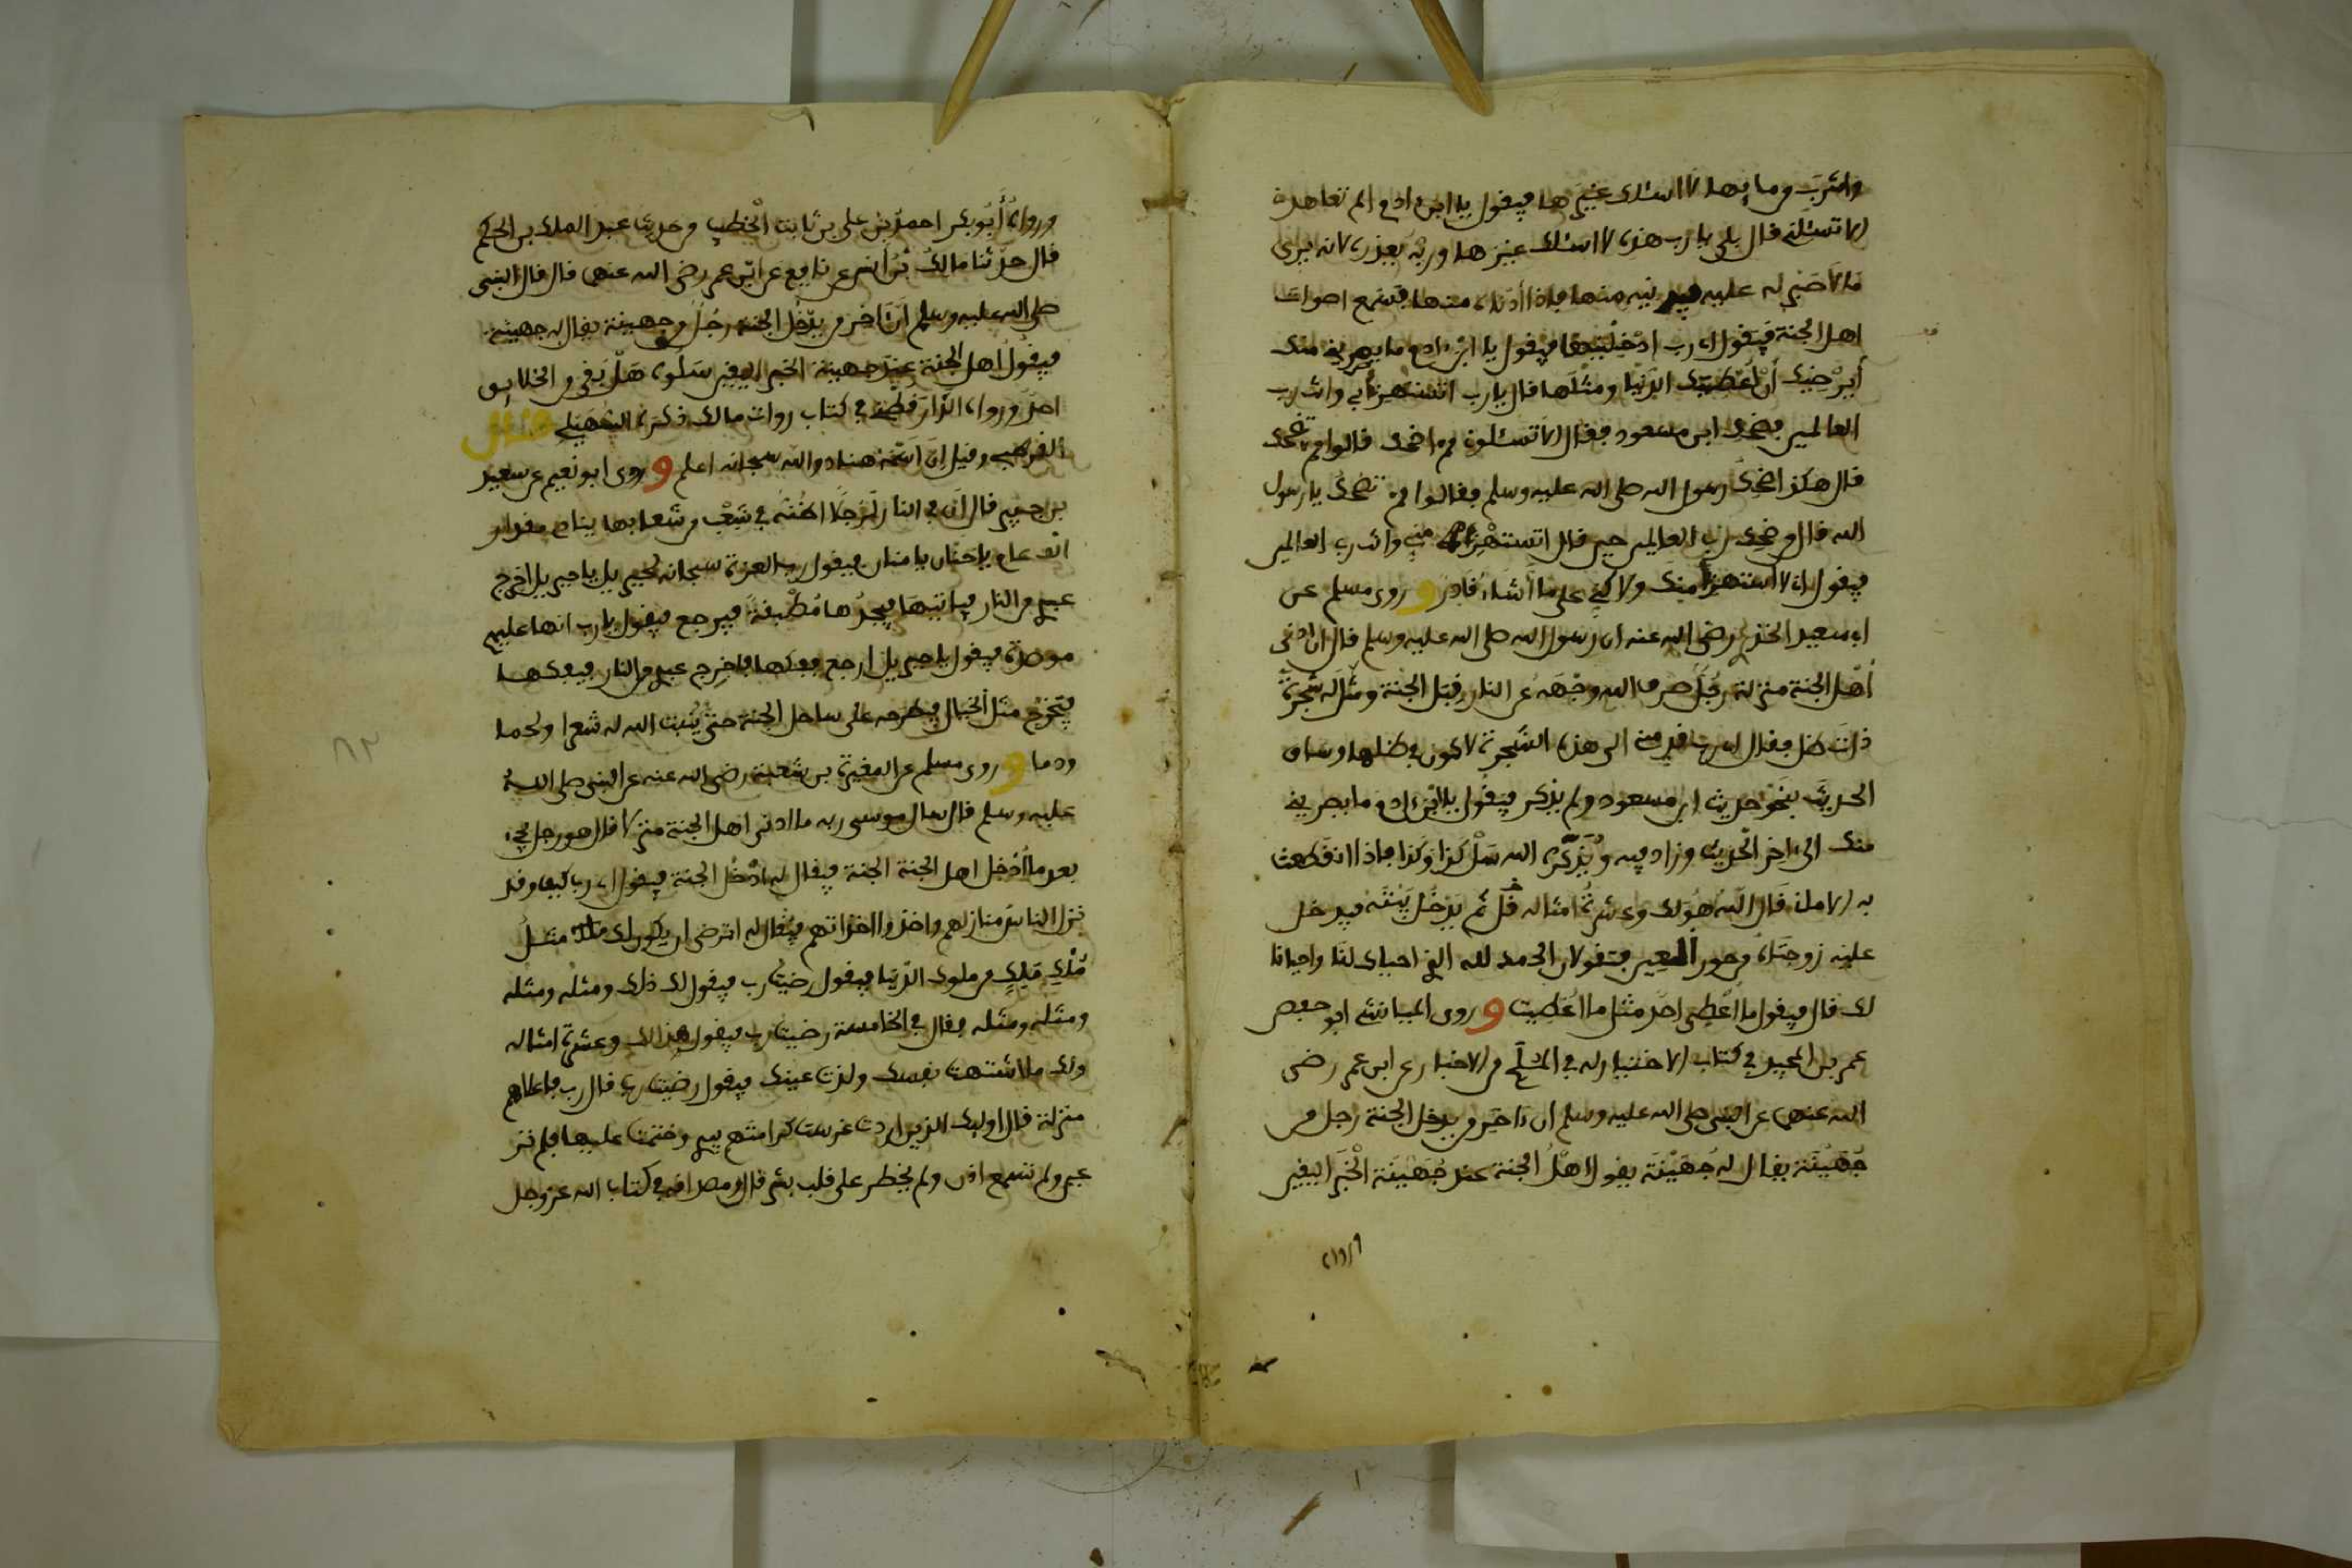 واشرب من مايها لا اسئلك غيرها فيقول يا ابن ادم الم تعاهدنى
الا تسئلنى قال بلى يا رب هذه لا اسئلك غيرها وربه يعذره لانه يرى
ما لا صبر له عليه فيدنيه منها فاذا أدناه منها فتسمع اصوات
اهل الجنة فَيَقول اى رب ادْخِلْنيها فيقول يا ابن ءادم ما يصرينى منك
أيرْضِيك أنْ اعْطيك الدّنيا ومثْلَها قال يا رب اتستهزئ بى وانت رب
العالمين فضحك ابن مسعود فقال الا تسئلونى مم اضحك قالوا مم تضحك
قال هكذا ضحِك رسول الله صلى الله عليه وسلم فقالوا مم تضحك يا رسول
الله قال من ضحِك رب العالمين حين قال اتستهْزئ منى وانت رب العالمين
فيقول انى لا استهزأ منك ولاكنى على ما أشاء قادر و روى مسلم عن
ابى سعيد الخدرى رضى الله عنه ان رسول الله صلى الله عليه وسلم قال ان ادنى
أهْل الجنة منزلة رجُل صرف الله وجْهَه عن النار قِبَل الجنّة ومثّل له شجرة
ذات ظل فقال اى رب قدمنى الى هذه الشّجرة لاكون فى ظلها وساق
الحديثَ بنحْو حديث ابن مسعود ولم يذكر فيقول يا ابن ءادم ما يصرينى
منك الى ءاخر الْحديث وزاد فيه ويُذكّره الله سَلْ كذا وكذا فاذا انقطعت
به الامانى قال الله هُو لك وعشرة امثاله قال ثم يدْخُل بَيْتَه فيدخل
عليه زوجتاه من حور العِين فتقولان الحمد لله الذى احياك لنا واحيانا
لك قال فيقول ما أعْطِى احد مثل ما اعْطيت و روى الميانشى ابو حفص
عمر بن المجيد فى كتاب الاختيار له فى المُلَح من الاخبار عن ابن عمر رضى
الله عنهما عن النبى صلى الله عليه وسلم ان ءاخر من يدخل الجنة رجل من
جُهَيْنَة يقال لهُ جُهَيْنَة يقول اهْلُ الجنة عند جُهَيْنَة الْخَبَر اليقين
ورواه أبُوبكر احمدُ بن على بن ثابت الْخطيب من حديث عبد الملك بن الحكم
قال حدّثنا مالكُ بْن أنس عن نافِع عن ابن عمر رضى الله عنهما قال قال النبى
صلى الله عليه وسلم انّ ءاخر من يدْخل الجنة رجُل من جهينة يقال له جهينة
فيقُولُ اهل الجنة عند جهينة الخبر اليقين سَلُوه هَلْ بَقى من الخلايق
احدٌ ورواه الدّارَقُطنى فى كتاب روات مالك ذكره السُهَيلى قال
القرطبى وقيل انّ اسْمَه هناد والله سبحانه اعلم و روى ابو نعيم عن سعيد
بن جبير قال انّ فى النار لَرجلًا اظنّه فى شِعْب من شعابها ينادى مقدار
الْف عام يا حنّان يا منان فيقول رب العزة سبحانه لجبريل يا جبريل اخرج
عبدى من النار فياتيها فيجدُها مُطْبقةً فيرجع فيقول يا رب انها عليهم
موصدة فيقول يا جبريل ارجع ففكها فاخرِج عبدى من النار فيفكها
فيخرج مثل الخيال فيطرحه على ساحل الجنة حتّى يُنبت الله له شعرا ولحما
ودما و روى مسلم عن المغيرة بن شعبة رضى الله عنه عن النبى صلى الله
عليه وسلم قال سال موسى ربه ما ادنى اهل الجنة منزلا قال هو رجل يجىء
بعد ما أدْخل اهل الجنة الجنة فيقال له ادْخُل الجنة فيقول اى رب كيف وقد
نزل الناسُ منازلهم واخذوا اخذاتهم فيقال له اترضى ان يكون لك مثلُ
مُلْك مَلِكٍ من ملوك الدّنيا فيقول رضيتُ رب فيقول لك ذلك ومثلُه ومثله
ومثله ومثله فقال فى الخامسة رضيت رب فيقول هذا لك وعشرة امثاله
ولك ما اشتهت نفسك ولذت عينك فيقول رضيت رب قال رب فاعلاهم
منزلة قال اوليك الذين اردت غرست كرامتهم بيدى وختمت عليها فلم تر
عين ولم تسمع اذن ولم يخطر على قلب بشر قال ومصداقه فى كتاب الله عز وجل